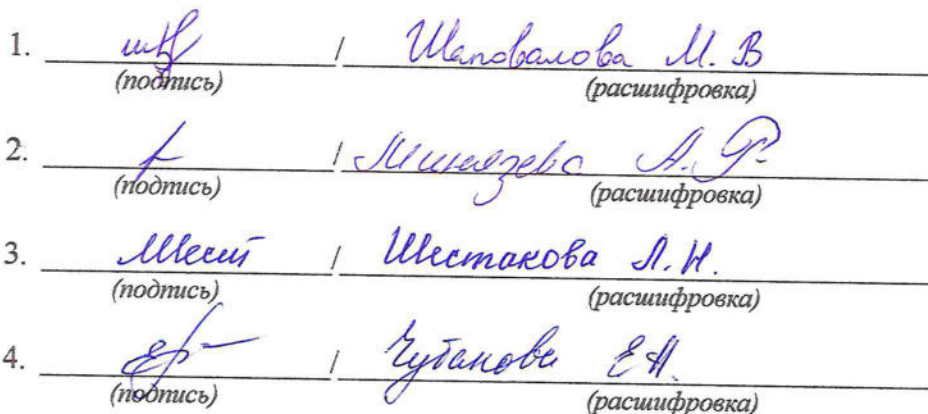 1. / Шаповалова М. В
(подпись) (расшифровка)
2. / Миниязева А. Р.
(подпись) (расшифровка)
3. Шест / Шестакова Л. Н.
(подпись) (расшифровка)
4. / Чубанова Е А.
(подпись) (расшифровка)